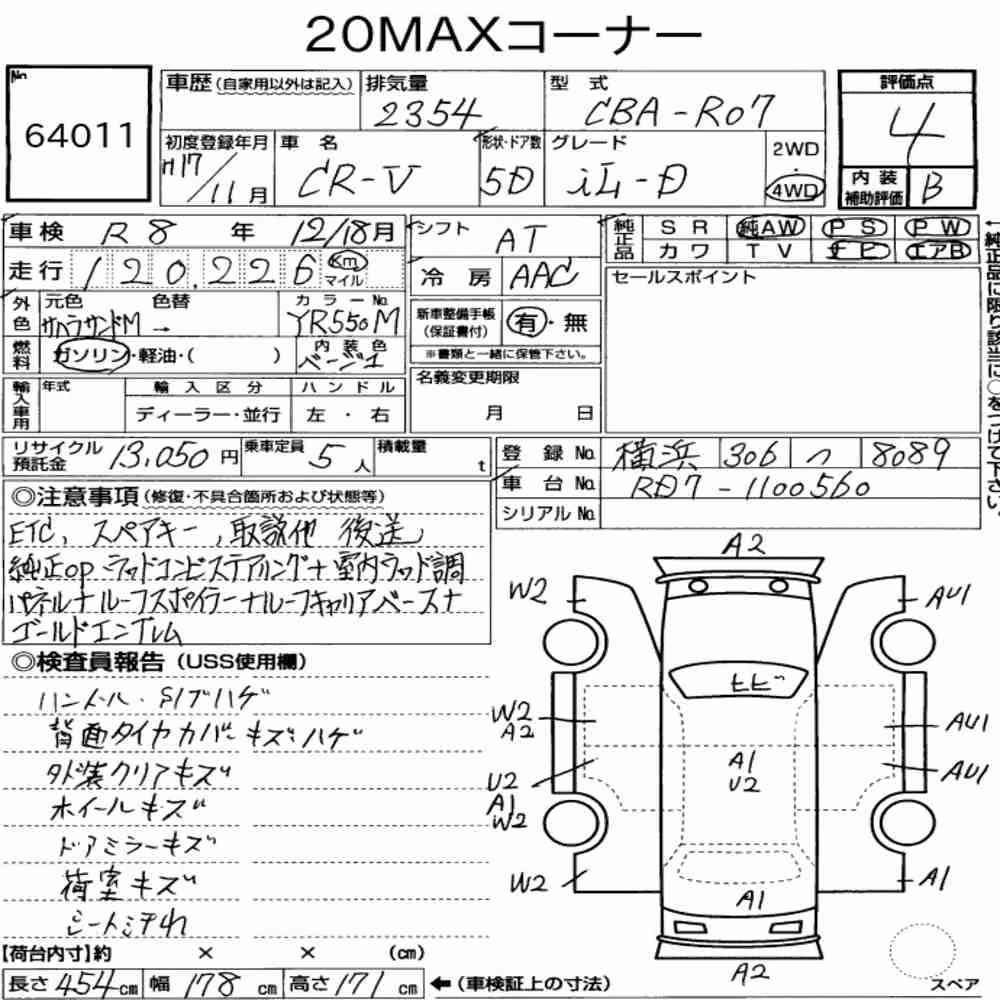 20MAXコーナー
No. 64011
車歴(自家用以外は記入) 排気量 2354 型式 CBA-R07
評価点 4
初度登録年月 H17/11月 車名 CR-V 形状・ドア数 5D グレード iL-D 2WD 4WD
内装補助評価 B
車検 R8年 12/18月 シフト AT
純正品 SR 純AW PS PW
カワ TV ナビ エアB
走行 120,226 Km マイル 冷房 AAC
セールスポイント
外色 元色 色替 カラーNo.
サハラサンドM → YR550M
新車整備手帳(保証書付) 有・無
※書類と一緒に保管下さい。
燃料 ガソリン・軽油・( ) 内装色 ベージュ
輸入車用 年式 輸入区分 ハンドル
ディーラー・並行 左・右
名義変更期限
月 日
リサイクル預託金 13,050円 乗車定員 5人 積載量 t
登録No. 横浜 306 つ 8089
車台No. RD7-1100560
シリアルNo.
←純正品に限り該当に○をつけて下さい。
◎注意事項(修復・不具合箇所および状態等)
ETC, スペアキー, 取説他 後送
純正op ウッドコンビステアリング+室内ウッド調
パネル+ルーフスポイラー+ルーフキャリアベース+
ゴールドエンブレム
◎検査員報告(USS使用欄)
ハンドル・S/ブハゲ
背面タイヤカバーキズハゲ
外装クリアキズ
ホイールキズ
ドアミラーキズ
荷室キズ
シートシヨれ
A2
W2 AU1
ヒビ
W2 A2 AU1
A1 U2
U2 AU1
A1 W2
W2 A1
A1
A2
スペア
【荷台内寸】約 × × (cm)
長さ 454cm 幅 178cm 高さ 171cm ←(車検証上の寸法)